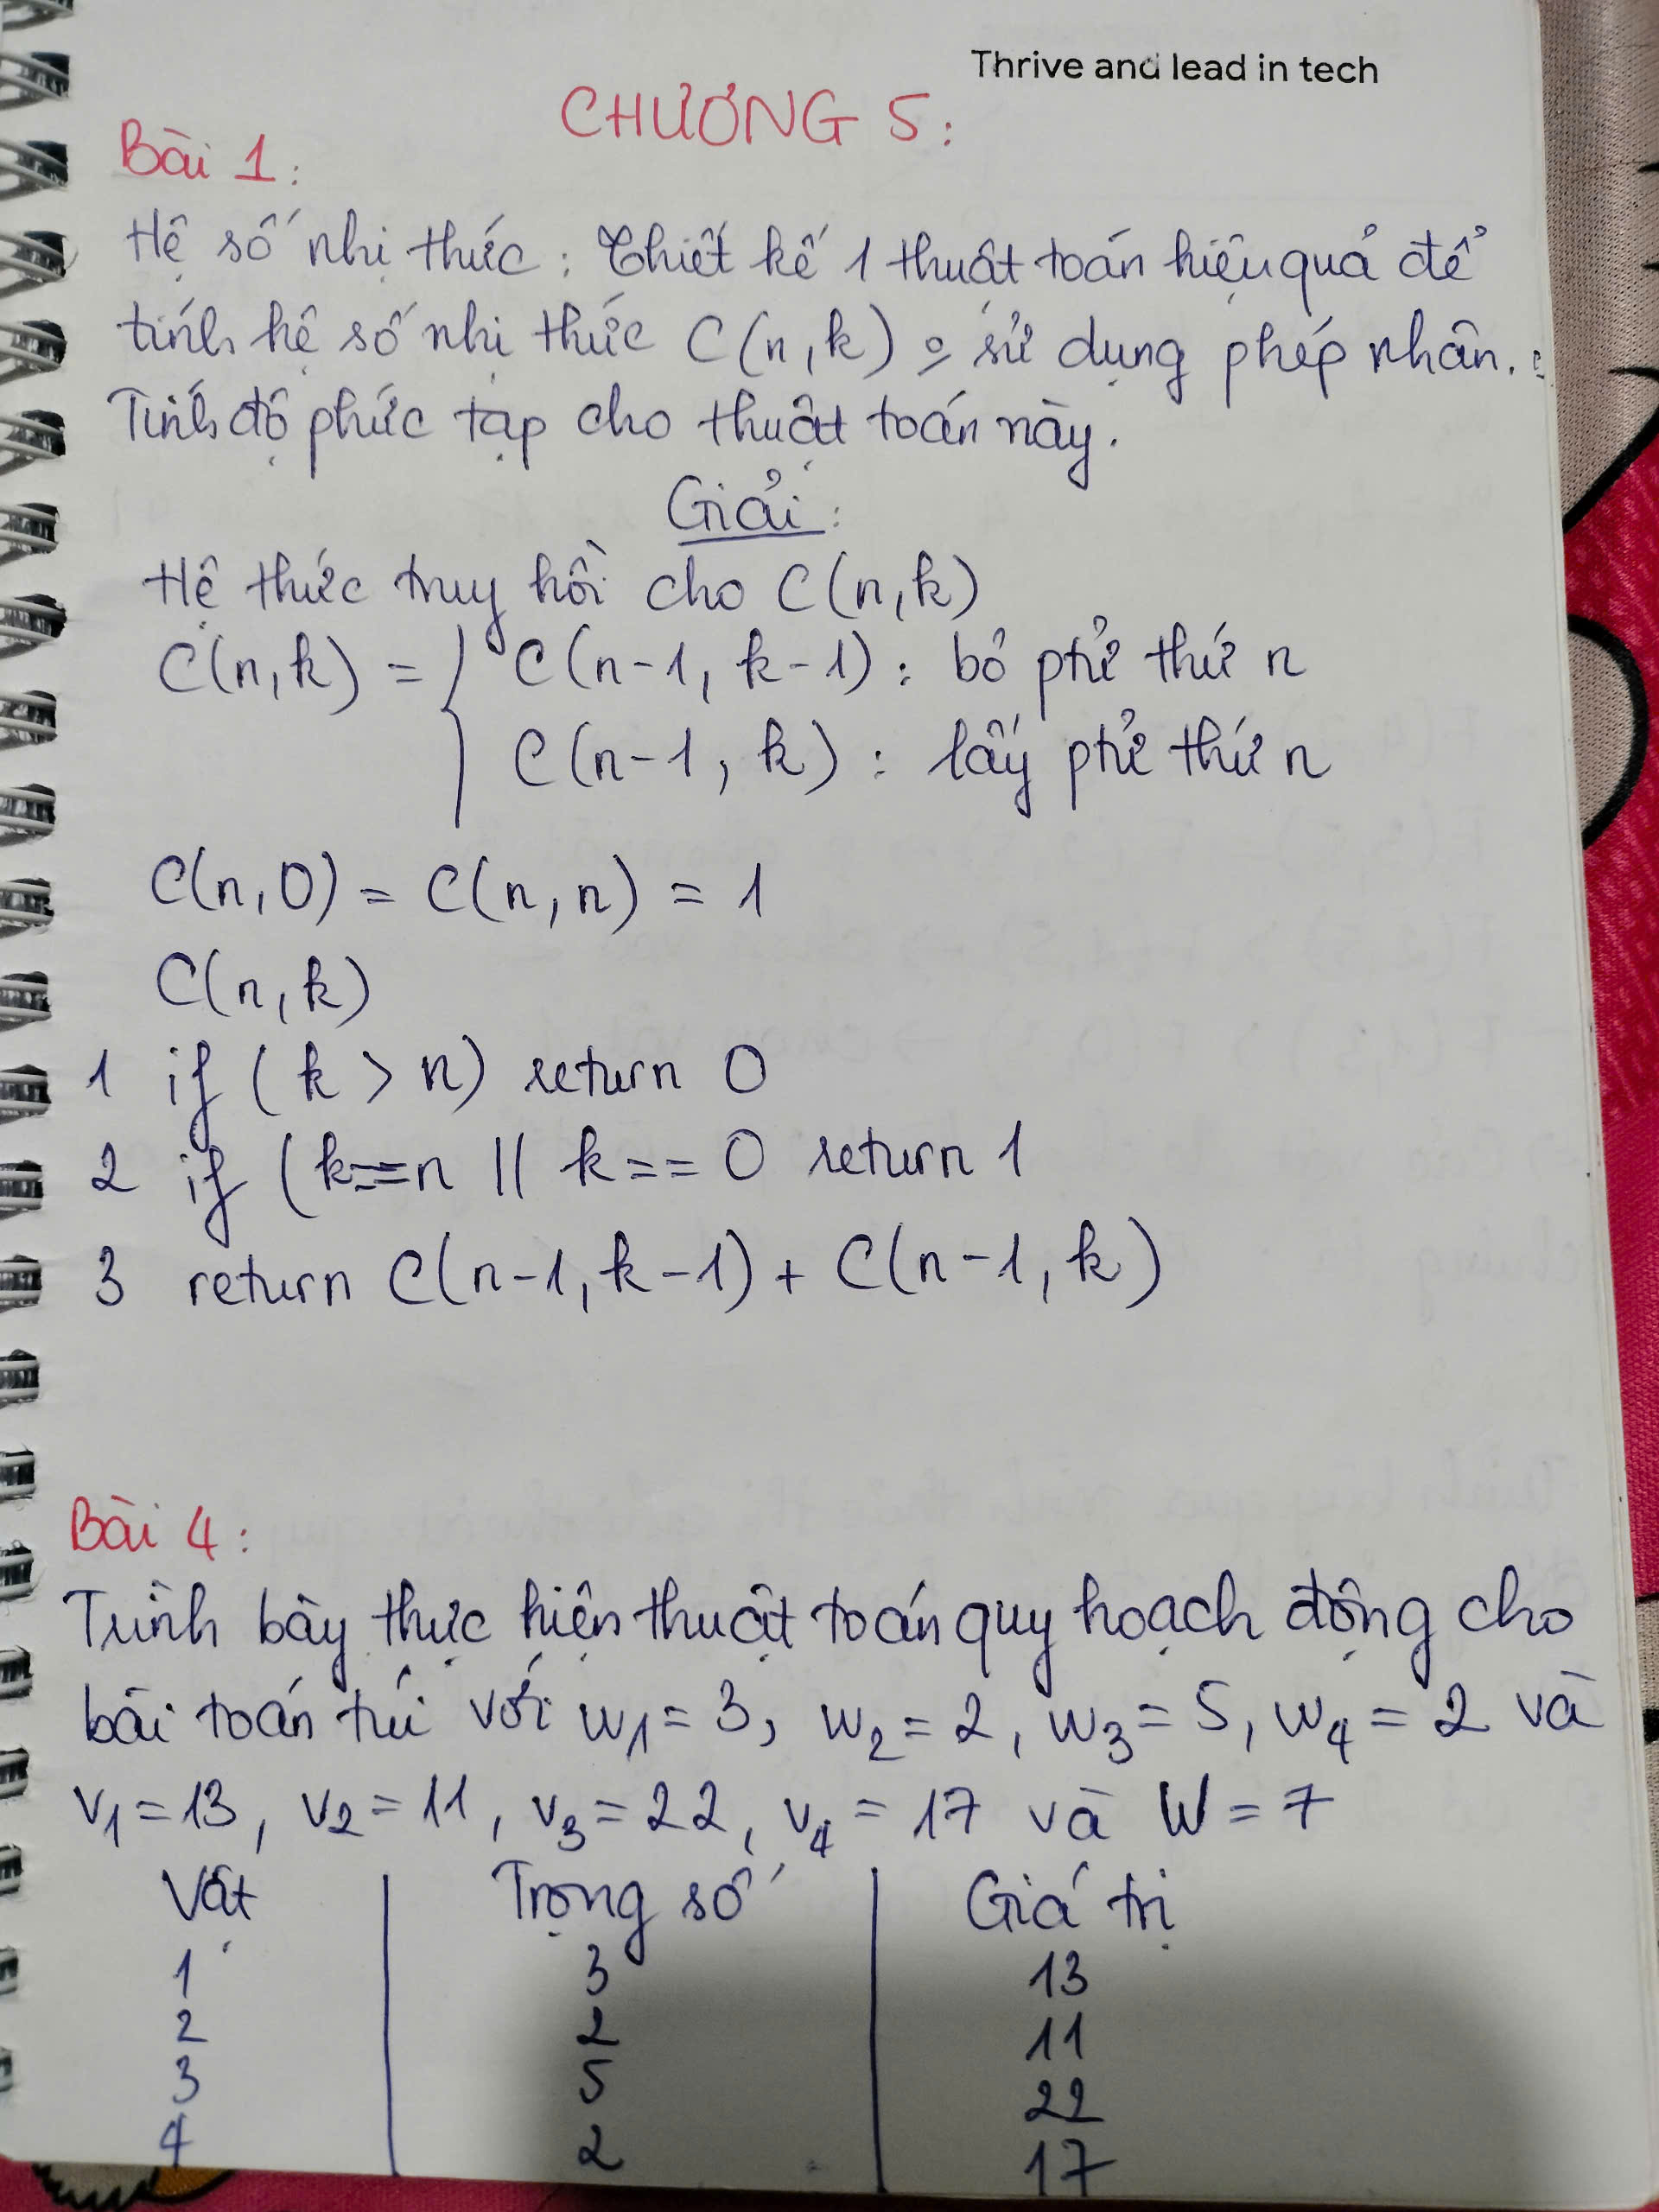 Thrive and lead in tech
CHƯƠNG 5:
Bài 1:
Hệ số nhị thức: Thiết kế 1 thuật toán hiệu quả để
tính hệ số nhị thức C(n,k) o sử dụng phép nhân.
Tính độ phức tạp cho thuật toán này.
Giải:
Hệ thức truy hồi cho C(n,k)
C(n,k) = { C(n-1, k-1): bỏ ptử thứ n
C(n-1, k): lấy ptử thứ n
C(n,0) = C(n,n) = 1
C(n,k)
1 if (k > n) return 0
2 if (k==n || k==0 return 1
3 return C(n-1,k-1) + C(n-1,k)
Bài 4:
Trình bày thực hiện thuật toán quy hoạch động cho
bài toán túi với w1=3, w2=2, w3=5, w4=2 và
v1=13, v2=11, v3=22, v4=17 và W=7
Vật Trọng số Giá trị
1 3 13
2 2 11
3 5 22
4 2 17